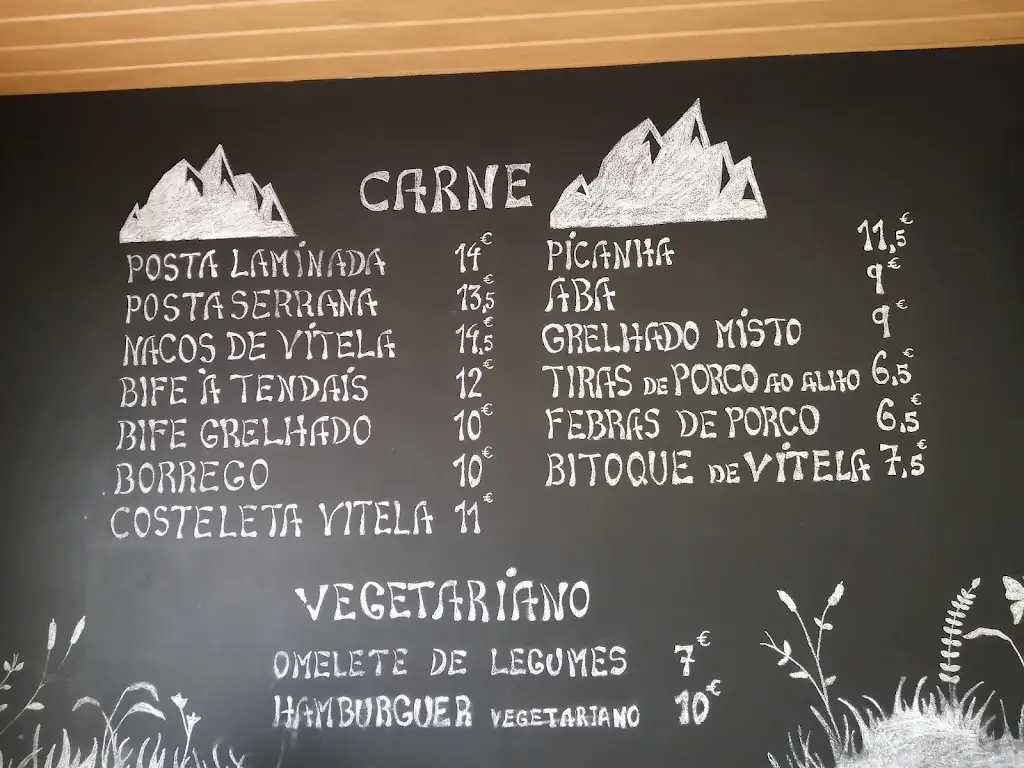 CARNE
POSTA LAMINADA 14€
POSTA SERRANA 13,5€
NACOS DE VITELA 14,5€
BIFE À TENDAIS 12€
BIFE GRELHADO 10€
BORREGO 10€
COSTELETA VITELA 11€
PICANHA 11,5€
ABA 9€
GRELHADO MISTO 9€
TIRAS DE PORCO AO ALHO 6,5€
FEBRAS DE PORCO 6,5€
BITOQUE DE VITELA 7,5€
VEGETARIANO
OMELETE DE LEGUMES 7€
HAMBURGUER VEGETARIANO 10€